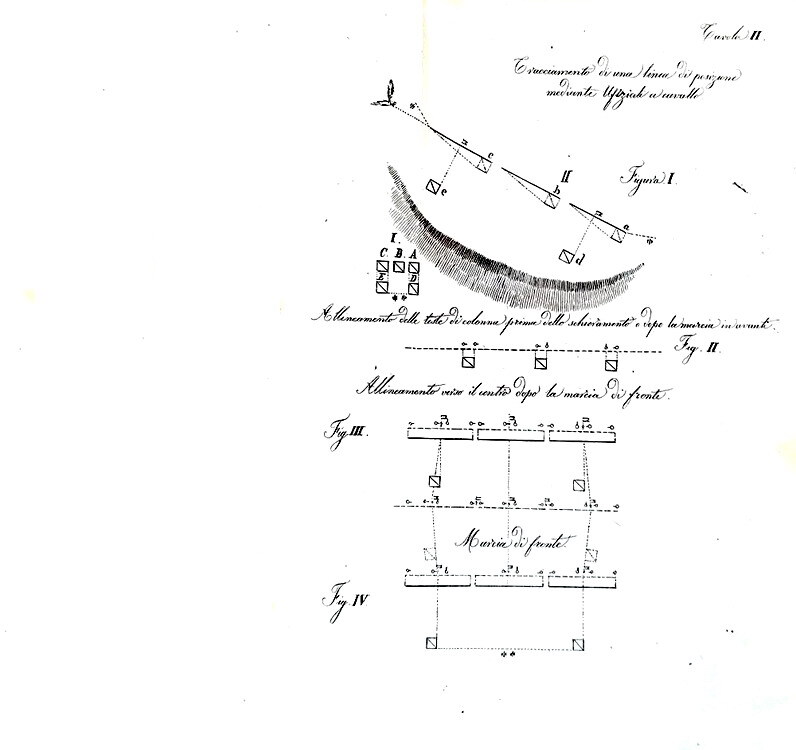 Tavola II.
Tracciamento di una linea di posizione
mediante Uffiziali a cavallo
c
II
b
Figura I.
e
a
d
I.
C. B. A
E D
Allineamento delle teste di colonna prima dello schieramento o dopo la marcia in avanti.
Fig. II.
Allineamento verso il centro dopo la marcia di fronte.
Fig. III.
Marcia di fronte.
Fig. IV